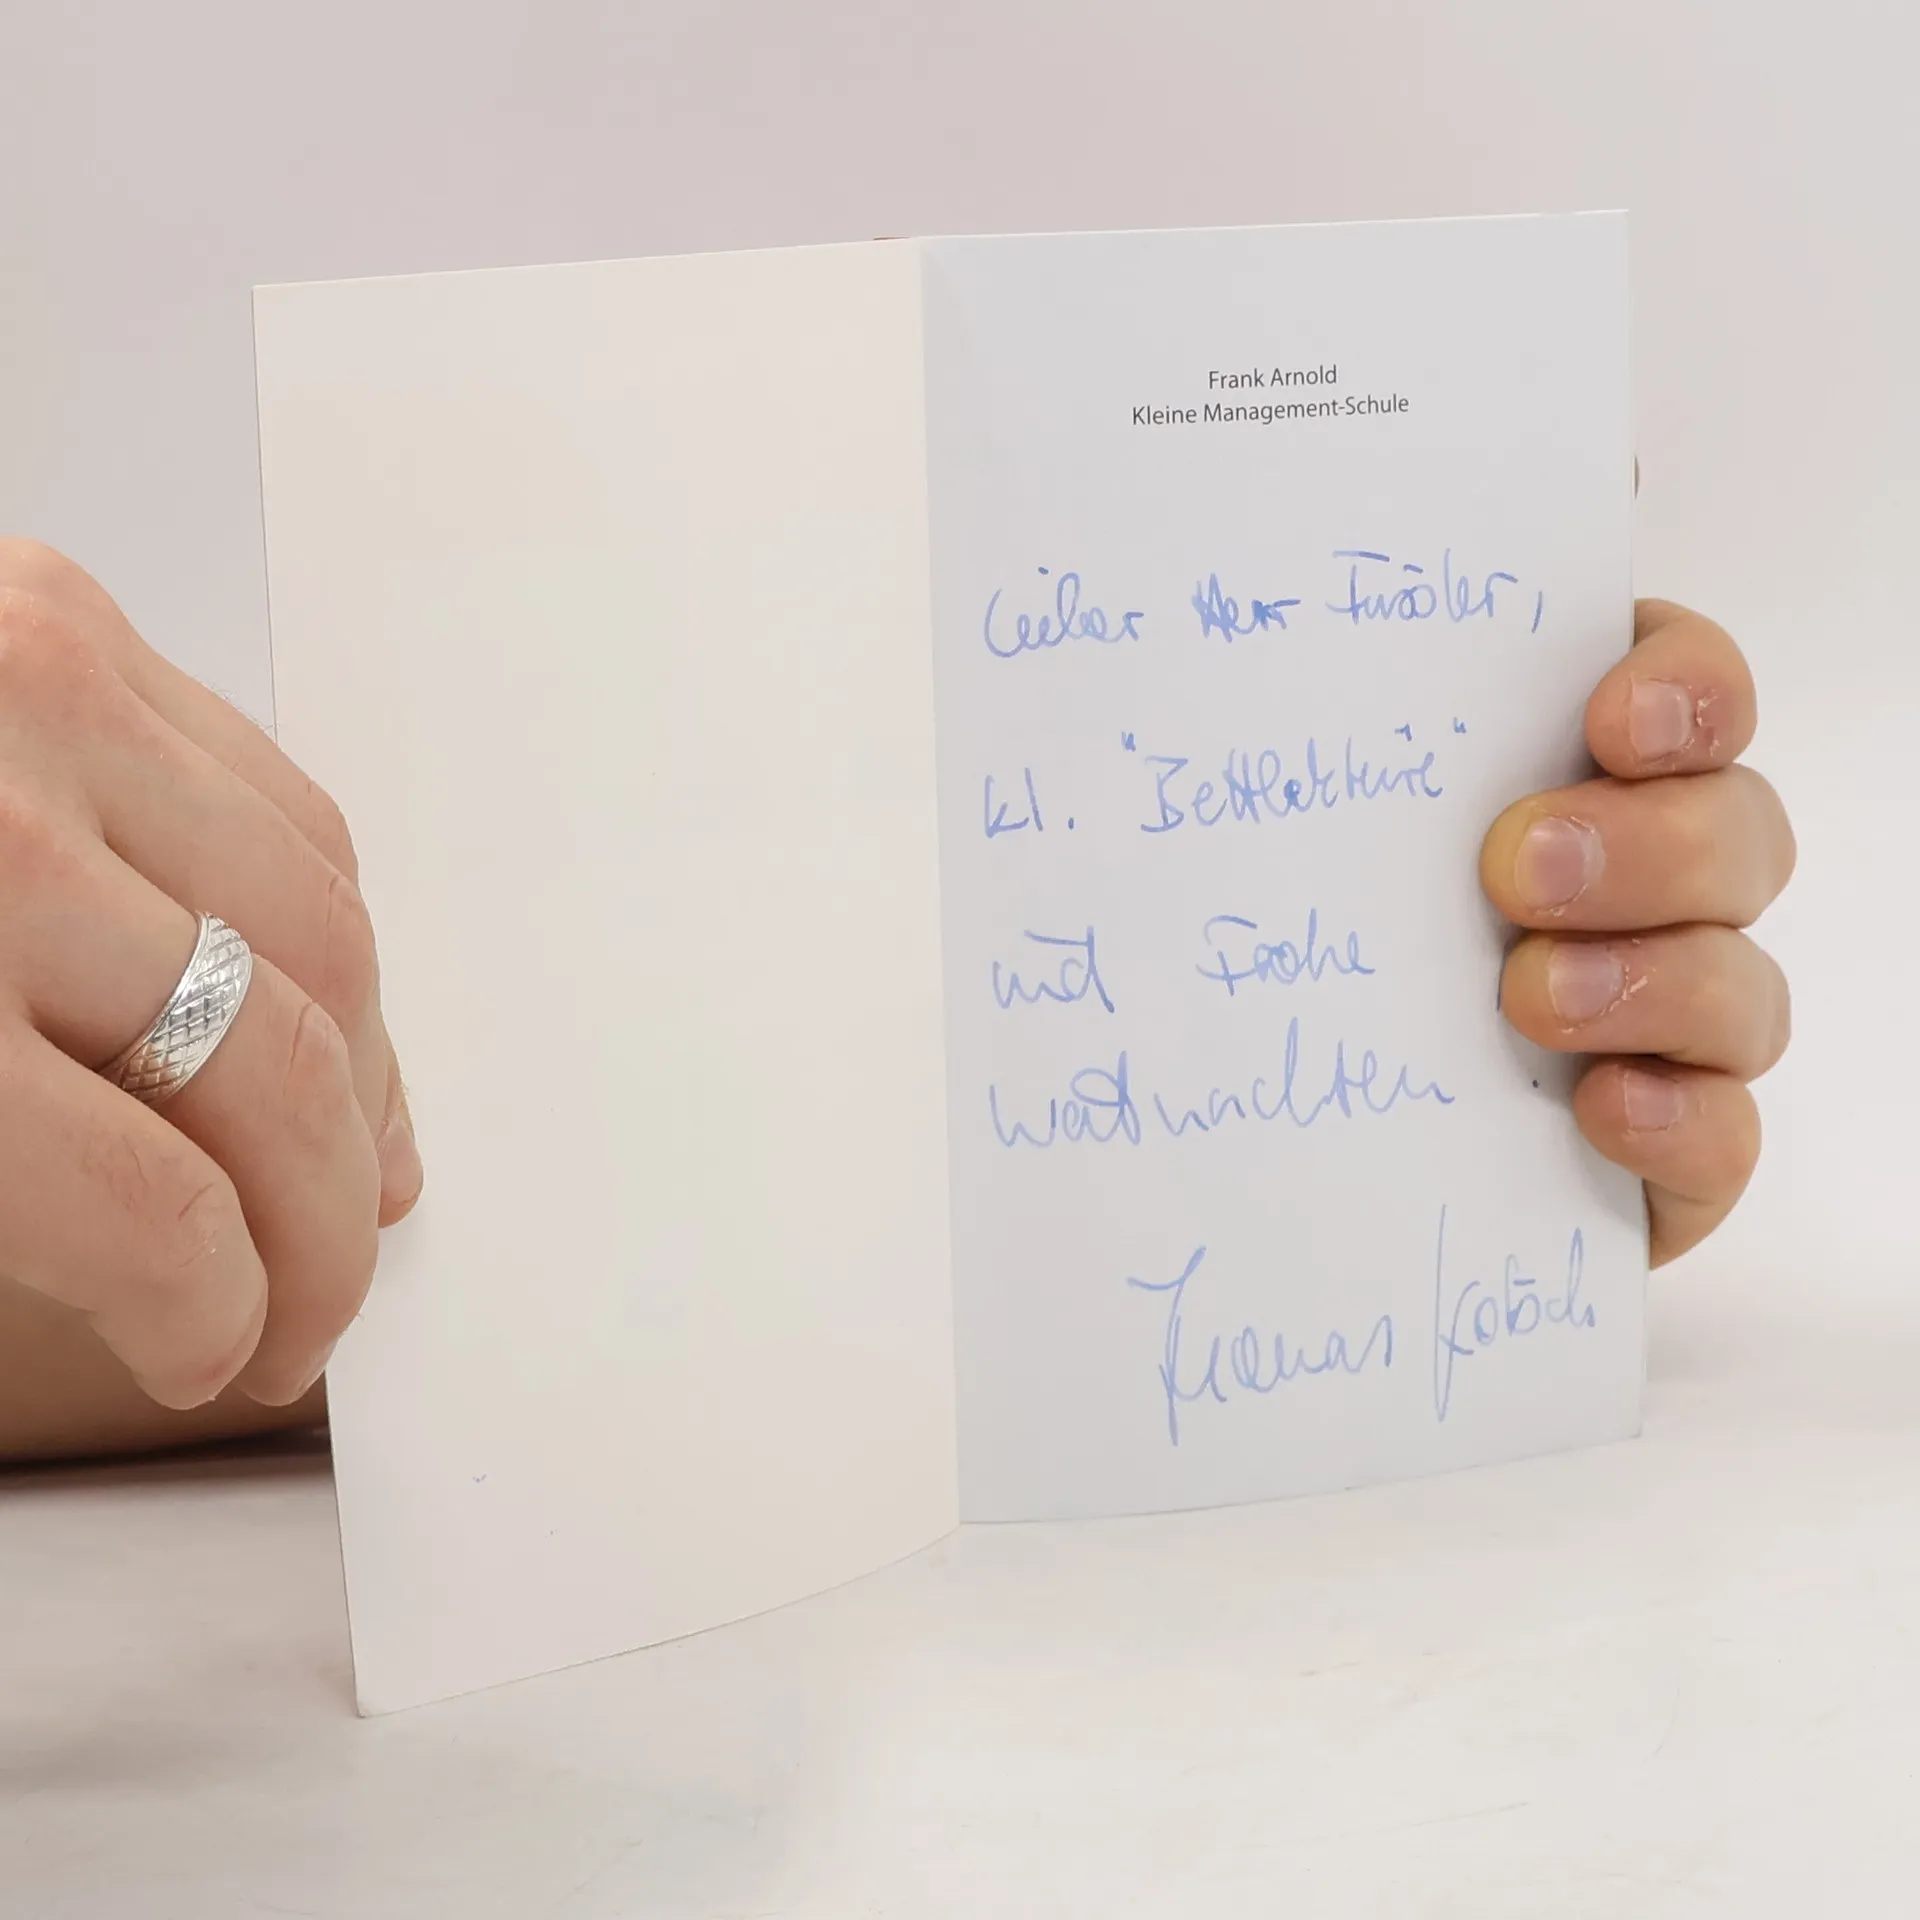 Frank Arnold
Kleine Management-Schule
Lieber Herr
kl. "Bettlektüre"
und Frohe
Weihnachten
Thomas